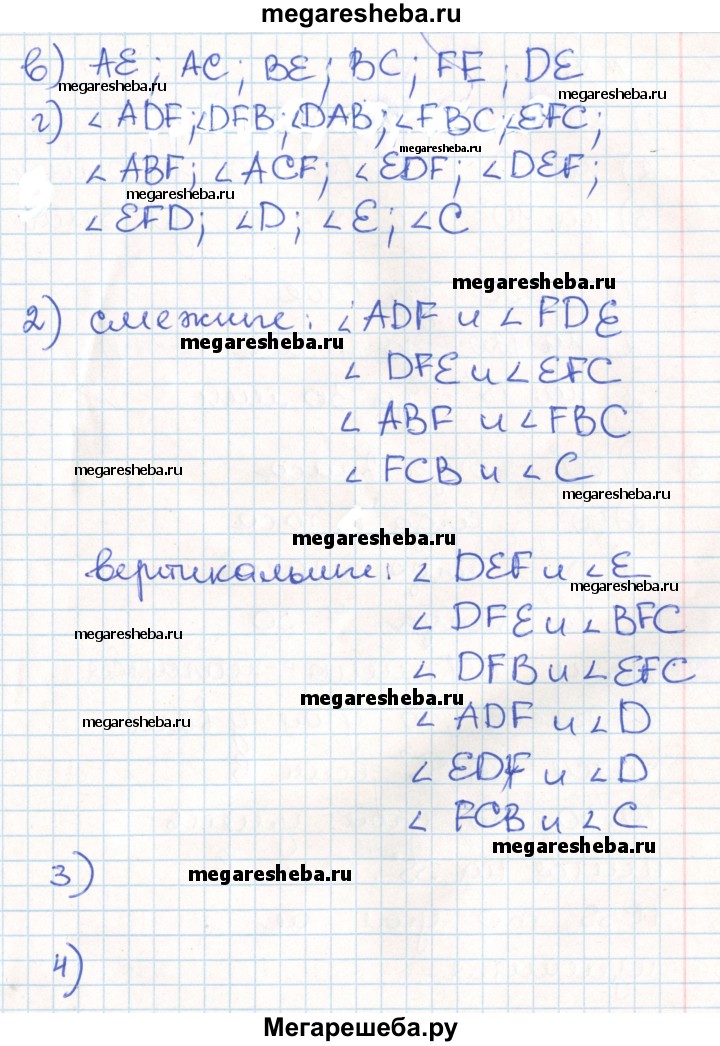 megaresheba.ru
в) AE; AC; BE; BC; FE; DE
megaresheba.ru
megaresheba.ru
г) ∠ADF; ∠DFB; ∠DAB; ∠FBC; ∠EFC;
megaresheba.ru
∠ABF; ∠ACF; ∠EDF; ∠DEF;
megaresheba.ru
∠EFD; ∠D; ∠E; ∠C
megaresheba.ru
2) смежные: ∠ADF и ∠FDE
megaresheba.ru
∠DFE и ∠EFC
∠ABF и ∠FBC
megaresheba.ru
∠FCB и ∠C
megaresheba.ru
megaresheba.ru
вертикальные: ∠DEF и ∠E
megaresheba.ru
∠DFE и ∠BFC
megaresheba.ru
∠DFB и ∠EFC
megaresheba.ru
∠ADF и ∠D
megaresheba.ru
∠EDF и ∠D
∠FCB и ∠C
megaresheba.ru
3)
megaresheba.ru
4)
Мегарешеба.ру